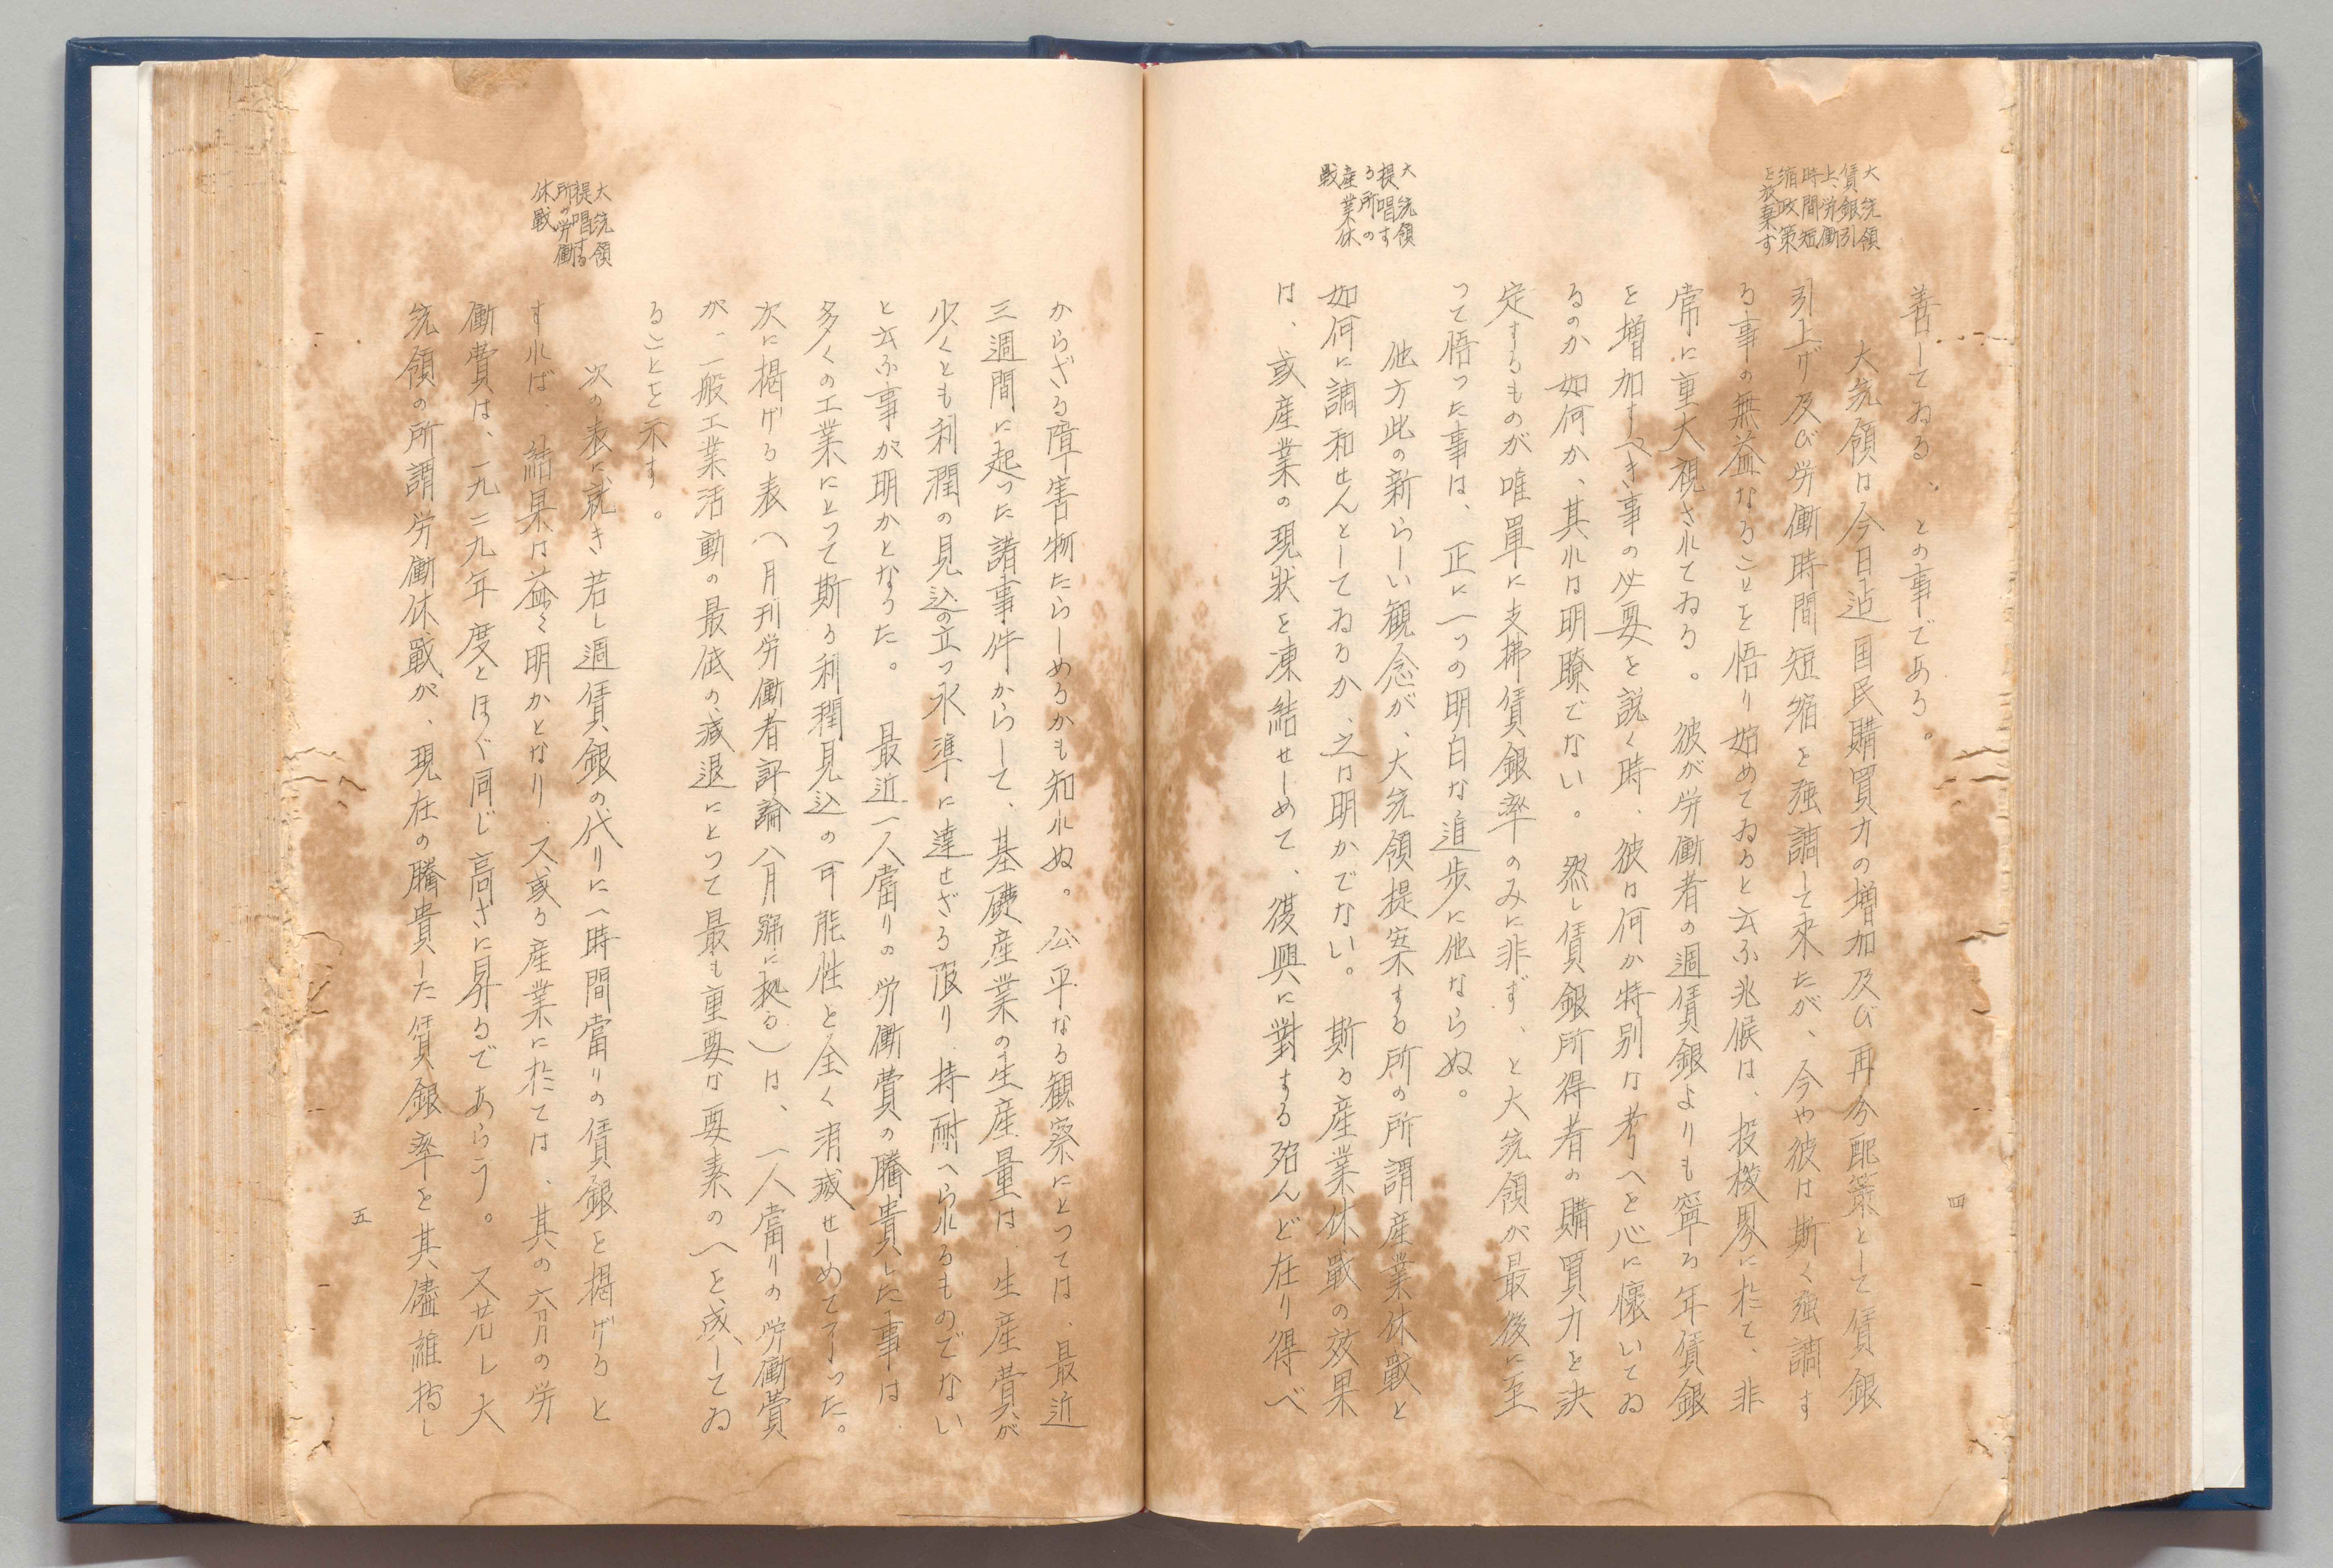 大統領
賃銀引
上、労働
時間短
縮政策
を放棄す
善してゐる、との事である。
大統領は今日迠国民購買力の増加及び再分配策として賃銀
引上げ及び労働時間短縮を强調して来たが、今や彼は斯く强調す
る事の無益なることを悟り始めてゐると云ふ兆候は、投機界に於て、非
常に重大視されてゐる。彼が労働者の週賃銀よりも寧ろ年賃銀
を増加すべき事の必要を説く時、彼は何か特別な考へを心に懐いてゐ
るのか如何か、其れは明瞭でない。然し賃銀所得者の購買力を決
定するものが唯單に支拂賃銀率のみに非ず、と大統領が最後に至
つて悟つた事は、正に一つの明白な進歩に他ならぬ。
大統領
提唱す
る所の
産業休
戰
他方此の新らしい観念が、大統領提案する所の所謂産業休戰と
如何に調和せんとしてゐるか、之は明かでない。斯る産業休戰の效果
は、或産業の現狀を凍結せしめて、復興に對する殆んど在り得べ
四
からざる障害物たらしめるかも知れぬ。公平なる観察にとつては、最近
三週間に起つた諸事件からして、基礎産業の生産量は、生産費が
少くとも利潤の見込の立つ水準に達せざる限り、持耐へられるものでない
と云ふ事が明かとなつた。最近一人當りの労働費の騰貴した事は、
多くの工業にとつて斯る利潤見込の可能性を全く消滅せしめてしつた。
次に掲げる表(月刊労働者評論八月號に拠る)は、一人當りの労働費
が、一般工業活動の最低の減退にとつて最も重要な要素の一を成してゐ
ることを示す。
大統領
提唱する
所の労働
休戰
次の表に就き若し週賃銀の代りに一時間當りの賃銀を掲げると
すれば、結果は益々明かとなり、又或る産業に於ては、其の六月の労
働費は、一九二九年度とほゞ同じ高さに昇るであらう。又若し大
統領の所謂労働休戰が、現在の騰貴した賃銀率を其儘維持し
五